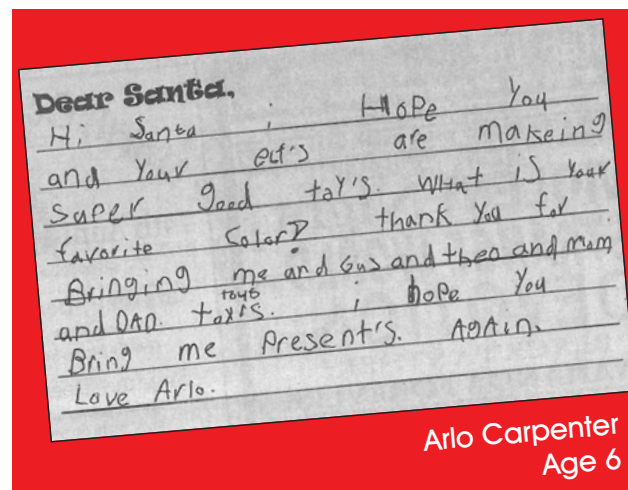 Dear Santa,
Hi Santa i HoPe You
and Your elf's are makeing
Super good toy's. WHat is Your
favorite Color? thank You for
Bringing me and Gus and theo and mom
toys
and DAD. toy's. i hope You
Bring me Present's. AgAin.
Love Arlo.
Arlo Carpenter
Age 6